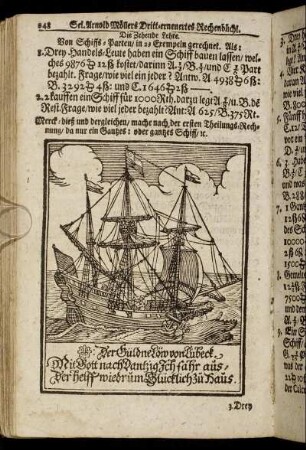 248 Sel. Arnold Möllers Dritt-erneuertes Rechenbüchl.
Die Zehende Lehre.
Von Schiffs-Parten/ in 29 Exempeln gerechnet. Als:
1. Drey Handels-Leute haben ein Schiff bauen lassen/ wel-
ches 9876 ₰ 12 ß kostet/ darinn A.½/B.⅓/und C ⅙ Part
bezahlt. Frage/wie viel ein jeder? Antw. A 4938 ₰ 6ß:
B. 3292 ₰ 4ß: und C. 1646 ₰ 2ß
2. 2 kauffen ein Schiff für 1000 Rth. darzu legt A /u. B. dē
Rest/ Frage/wie viel jeder bezahlt? Ant: A 625/B. 375 Rt.
Merck/ dieß und dergleichen/ mache nach der ersten Theilungs-Rech-
nung/ da nur ein Gantzes: oder gantzes Schiff/ ꝛc.
Der Güldne Löw von Lübeck.
Mit Gott nach Dantzig Ich fahr aus,
Der helff wiedrüm Glücklich zü Haus.
3. Drey